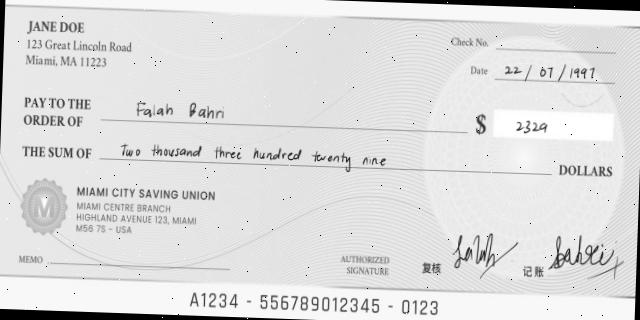 JANE DOE
123 Great Lincoln Road
Miami, MA 11223
Check No.
Date 22 / 07 / 1997
PAY TO THE
ORDER OF Falah Bahri
$ 2329
THE SUM OF Two thousand three hundred twenty nine DOLLARS
M
MIAMI CITY SAVING UNION
MIAMI CENTRE BRANCH
HIGHLAND AVENUE 123, MIAMI
M56 7S - USA
MEMO
AUTHORIZED
SIGNATURE
复核 Falah
记账 Bahri
A1234 - 556789012345 - 0123